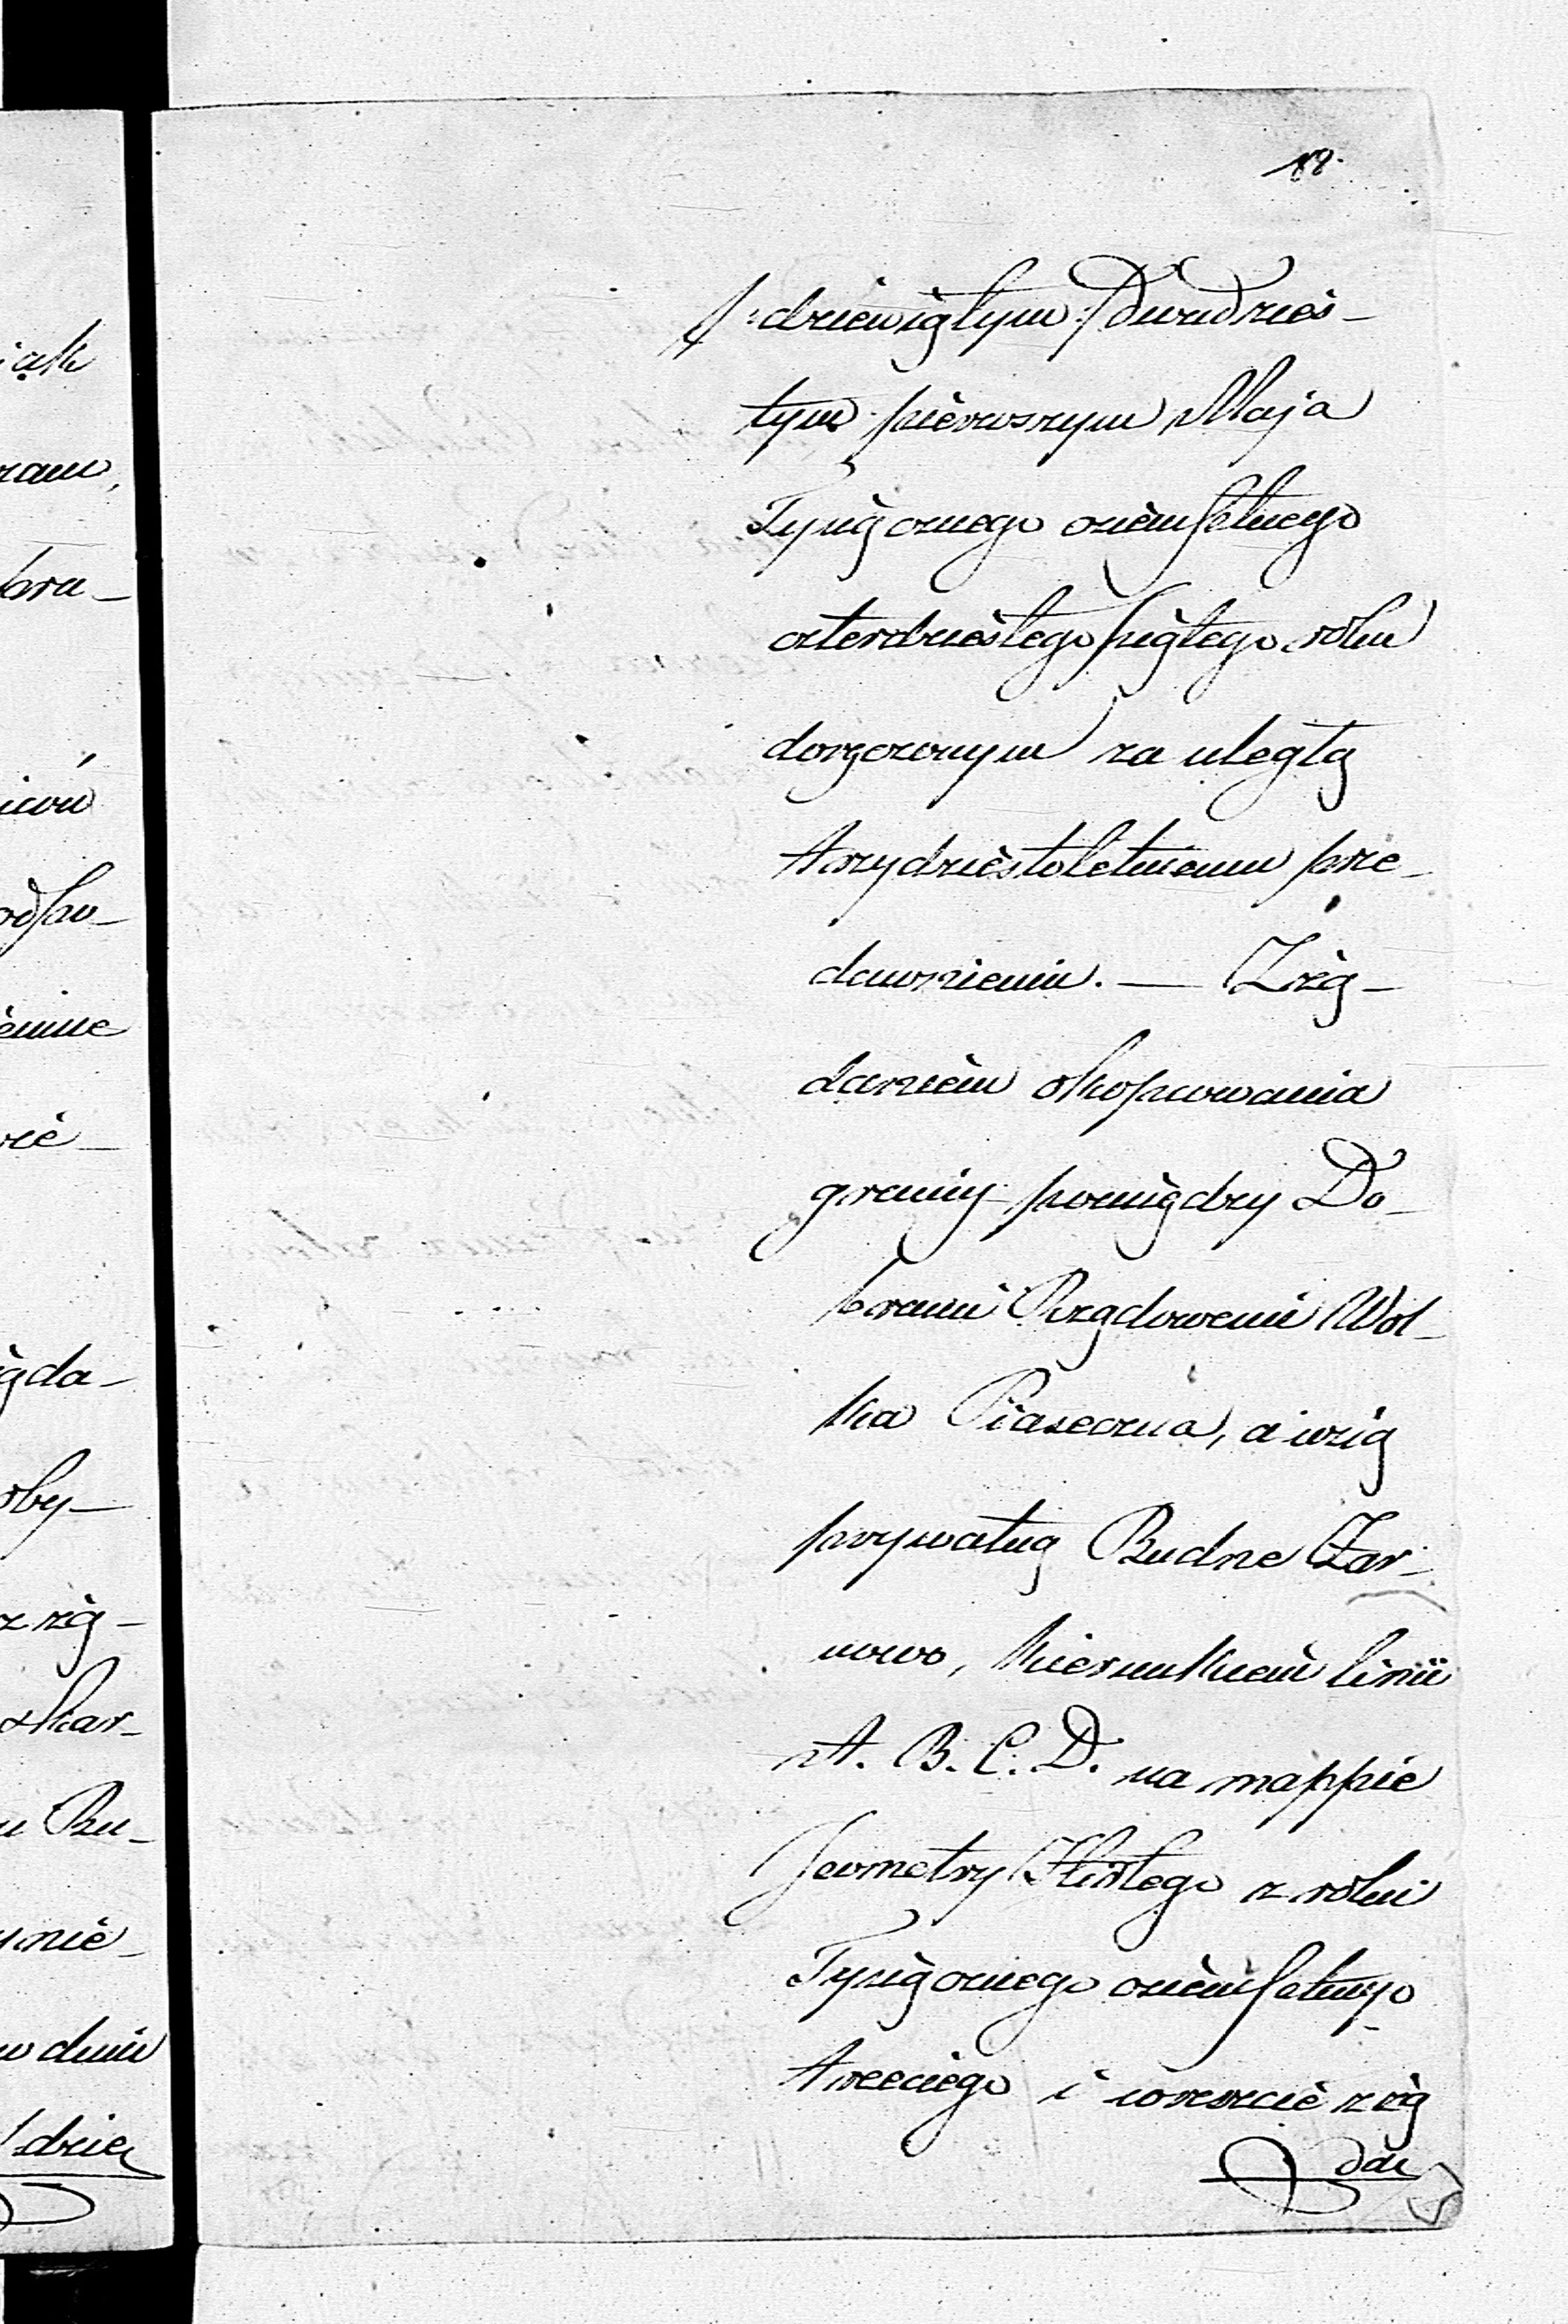 18.
/:dziewiątym:/ Dwudzies-
tym pierwszym Maja
Tysiącznego ośmsetnego
czterdziestego piątego roku
doręczonym za uległą
trzydziestoletniemu prze-
dawnieniu. — Z żą-
daniem okopcowania
granicy pomiędzy Do-
brami Rządowemi Wól-
ka Piaseczna, a wsią
prywatną Budne Żar-
nowo, kierunkiem linii
A. B. C. D. na mappie
Jeometry z roku
Tysiącznego ośmsetnego
trzeciego i wreszcie z żą
dan
iak
zam,
bra-
odpu-
ęda-
oby-
z żą-
skar-
u Bu-
w dniu
/dzie